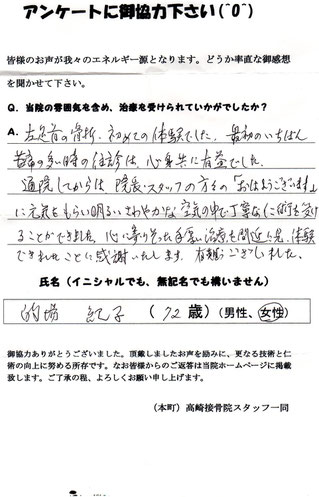 アンケートに御協力下さい(^0^)
皆様のお声が我々のエネルギー源となります。どうか率直な御感想
を聞かせて下さい。
Q. 当院の雰囲気を含め、治療を受けられていかがでしたか？
A. 左足首の骨折、初めての体験でした。最初のいちばん
苦痛の多い時の往診は、心身共に有益でした。
通院してからは 院長・スタッフの方々の「おはようございます」
に元気をもらい明るいさわやかな空気の中で丁寧な仁術を受け
ることができました。心に寄り添った手厚い治療を間近に見、体験
できましたことに感謝いたします。有難うございました。
氏名（イニシャルでも、無記名でも構いません）
的場 紀子 （72歳）（男性、女性）
御協力ありがとうございました。頂戴しましたお声を励みに、更なる技術と仁
術の向上に努める所存です。なお皆様からのご返答は当院ホームページに掲載
致します。ご了承の程、よろしくお願い申し上げます。
（本町）高崎接骨院スタッフ一同